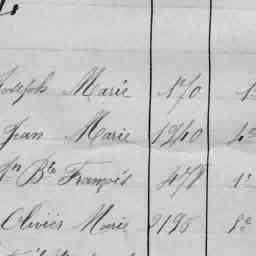 Joseph Marie 170 1
Jean Marie 1240 4e
Bte François 478 1e
Olivier Marie 2196 2e